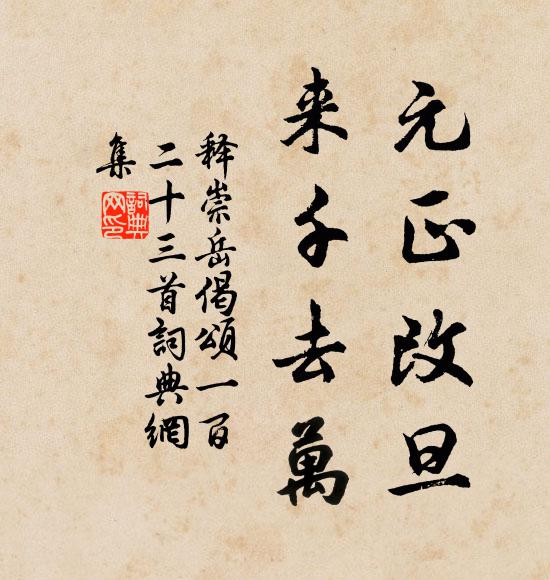 元正改旦
来千去萬
释崇岳偈頌一百
二十三首詞典網
集
詞典網印